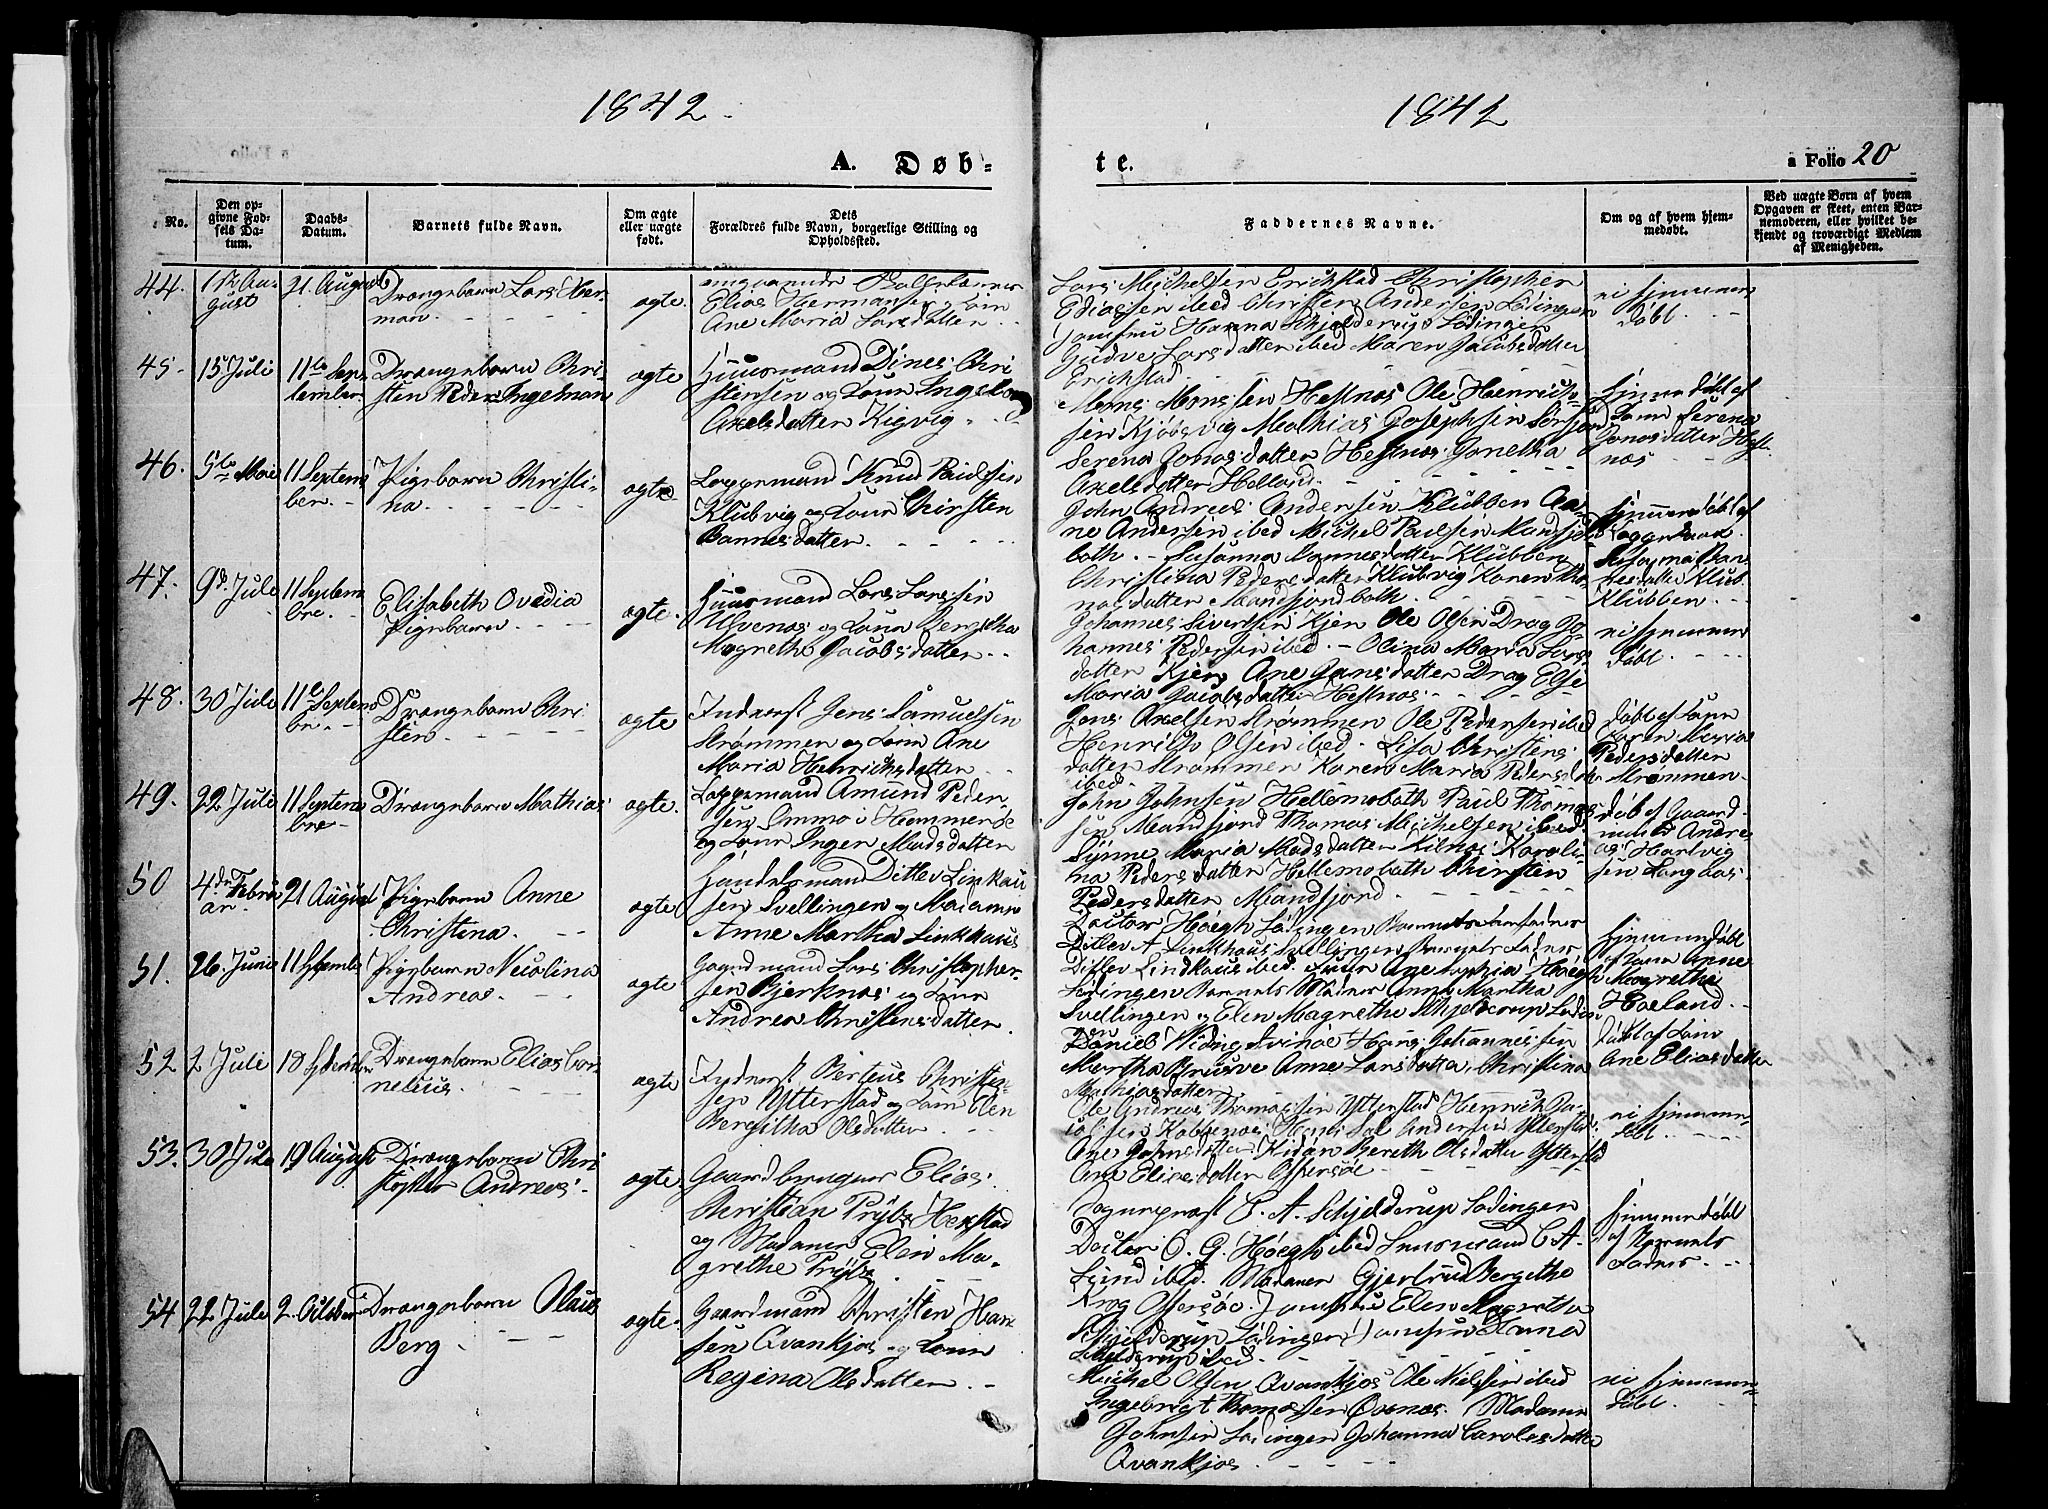 1842.
1842
A. Døb-
te.
a Folio 20
No.
Den op-
givne Fød-
sels Da-
tum.
Daabs-
Datum.
Barnets fulde Navn.
Om ægte
eller uægte
født.
Dets
Forældres fulde Navn, borgerlige Stilling og
Opholdssted.
Faddernes Navne.
Om og af hvem hjem-
medøbt.
Ved uægte Børn af hvem
Opgaven er skeet, enten Bar-
nemoderen, eller hvilket be-
kjendt og troværdigt Medlem
af Menigheden.
44. August 21. August Drængebarn Lars Her-
man. ægte.
Elias Hermansen og Kone
Ane Maria Larsdatter
Lars Michelsen Erichstad Christopher
Eliassen ibed Christen Andersen Lödingen
Jomfru Hanna Schjelderup Lödingen
Larsdatter ibed Maren Jacobsdatter
Erichstad
45. 15 Juli 11te Sep-
tember Drængebarn Chri-
sten Peder Ingelman ægte
Huusmand Dines Chri
stensen og Kone Ingebor
Axelsdatter Kigvig
Mons Monssen Hestnes Ole Henrich-
sen Kjøbsvig Mathias Josephsen Sørfjord
Serena Jonasdatter Hestnes Jonetha
Axelsdatter Helland.
hjemmedøbt af
Kone Serena
Jonasdatter Hest-
næs
46. 5te Mai 11 Septem-
ber Pigebarn Christi-
na. ægte
Lappemand Knud Paulsen
Klubvig og Kone Chirsten
Hannesdatter.
John Andreas Andersen Klubben
Andersen ibed Michel Paulsen Mandfjord
both. - Susanna Hannesdatter Klubben
Christina Pedersdatter Klubvig Karen
datter Mandfjordboth.
hjemmedøbt af
Klub
Klubben
47. 9de Jule 11 Septem
bre. Elisabeth Ovedia
Pigebarn ægte.
Huusmand Lars Larssen
Ulvenæs og Kone Beretha
Magrethe Jacobsdatter
Johannes Sivertsen Kjær Ole Olsen Drag Jo-
hannes Pedersen ibed. - Olina Maria Lars
datter Kjær Ane Jansdatter Drag Else
Maria Jacobsdatter Hestnæs.
ei hjemme
døbt.
48. 30 Jule 11te Septem
br. Drængebarn Chri
sten. ægte
Inderst Jens Samuelsen
Strømmen og Kone Ane
Maria Henrichsdatter
Jens Axelsen Strømmen Ole Pedersen ibed
Henrich Olsen ibed. Lisa Christens
datter Strømmen Karen Maria Pedersdatter
ibed
døbt af Kone
Karen Maria
Pedersdatter
Strømmen.
49. 22 Juli 11 Septem
bre Drængebarn Mathias ægte.
Lappemand Amund Peder-
sen i Hammerøe
og Kone Inger Madsdatter
John Johnsen Hellemoboth Paul Thomas
sen Mandfjord Thomas Michelsen ibed
Synne Maria Madsdatter Karoli
na Pedersdatter Hellemoboth Chirsten
Pedersdatter Mandfjord.
døb af Gaard-
mand Andre
as Hartvig
sen
50 4de Febru
ar 21 August Pigebarn Anne
Christina. ægte
Handelsmand Ditlev Linkau
sen Svellingen og Madame
Anne Martha Linkhaus
Doctor Høegh Lödingen Barnets
Ditlev A Linkhaus Svellingen Barnets Fader
Ditlev Lindkaus ibed. Frue Ane Sophia Høegh
Lödingen Barnets Moder Anne Martha
Svellingen og Elen Magrethe Schjelderup Lödin
gen
hjemmedøbt
af Kone Anne
Magretha
51. 26 Junie 11 Septembr Pigebarn Nicolina
Andrea. ægte
Gaardmand Lars Christopher-
sen Bjerknæs og Kone
Andrea Christensdatter.
Daniel Widing Svinøe Hans Johannessen
Martha Anne Larsdatter Christina
Mathiasdatter
døbt af Kone
Ane Eliasdatter
52 2 Jule 18 Septembr Drængebarn Elias Cor-
nelius. ægte
Inderst Berteus Christen-
sen Ytterstad og Kone Elen
Bergitha Olsdatter
Ole Andreas Thomassen Ytterstad Henrich Ja-
cobsen Andersen Ytterstad
Ane Johnsdatter Bereth Olsdatter Ytterstad
Ane Eliasdatter Offersøe
ei hjemme-
døbt.
53. 30 Jule 19 August Drængebarn Chri
stopher Andreas ægte.
Gaardbruger Elias
Christian Prÿtz Herstad
og Madame Elen Ma-
grethe Prÿtz
Sogneprest E. A. Schjelderup Lödingen
Doctor O. G. Høegh ibed Snusmand C A
Lund ibed. Madame Gjertrud Bergethe
Krog Offersøe. Jomfrue Elen Magretha
Schjelderup Lödingen Jomfru Anna
Schjelderup ibed.
hjemmedøbt
af Barnets
Fader.
54 22 Jule 2. Octobr Drængebarn Olaus
Berg. ægte.
Gaardmand Christen Han
sen Qvankjos og Kone
Regina Olsdatter.
Michel Olsen Qvankjos Ole Nielsen ibed
Ingebrigt Thomassen Qvænes. Madame
Johnsen Lödingen Johanna Carolesdatter
Qvankjos
ei hjemme-
døbt.